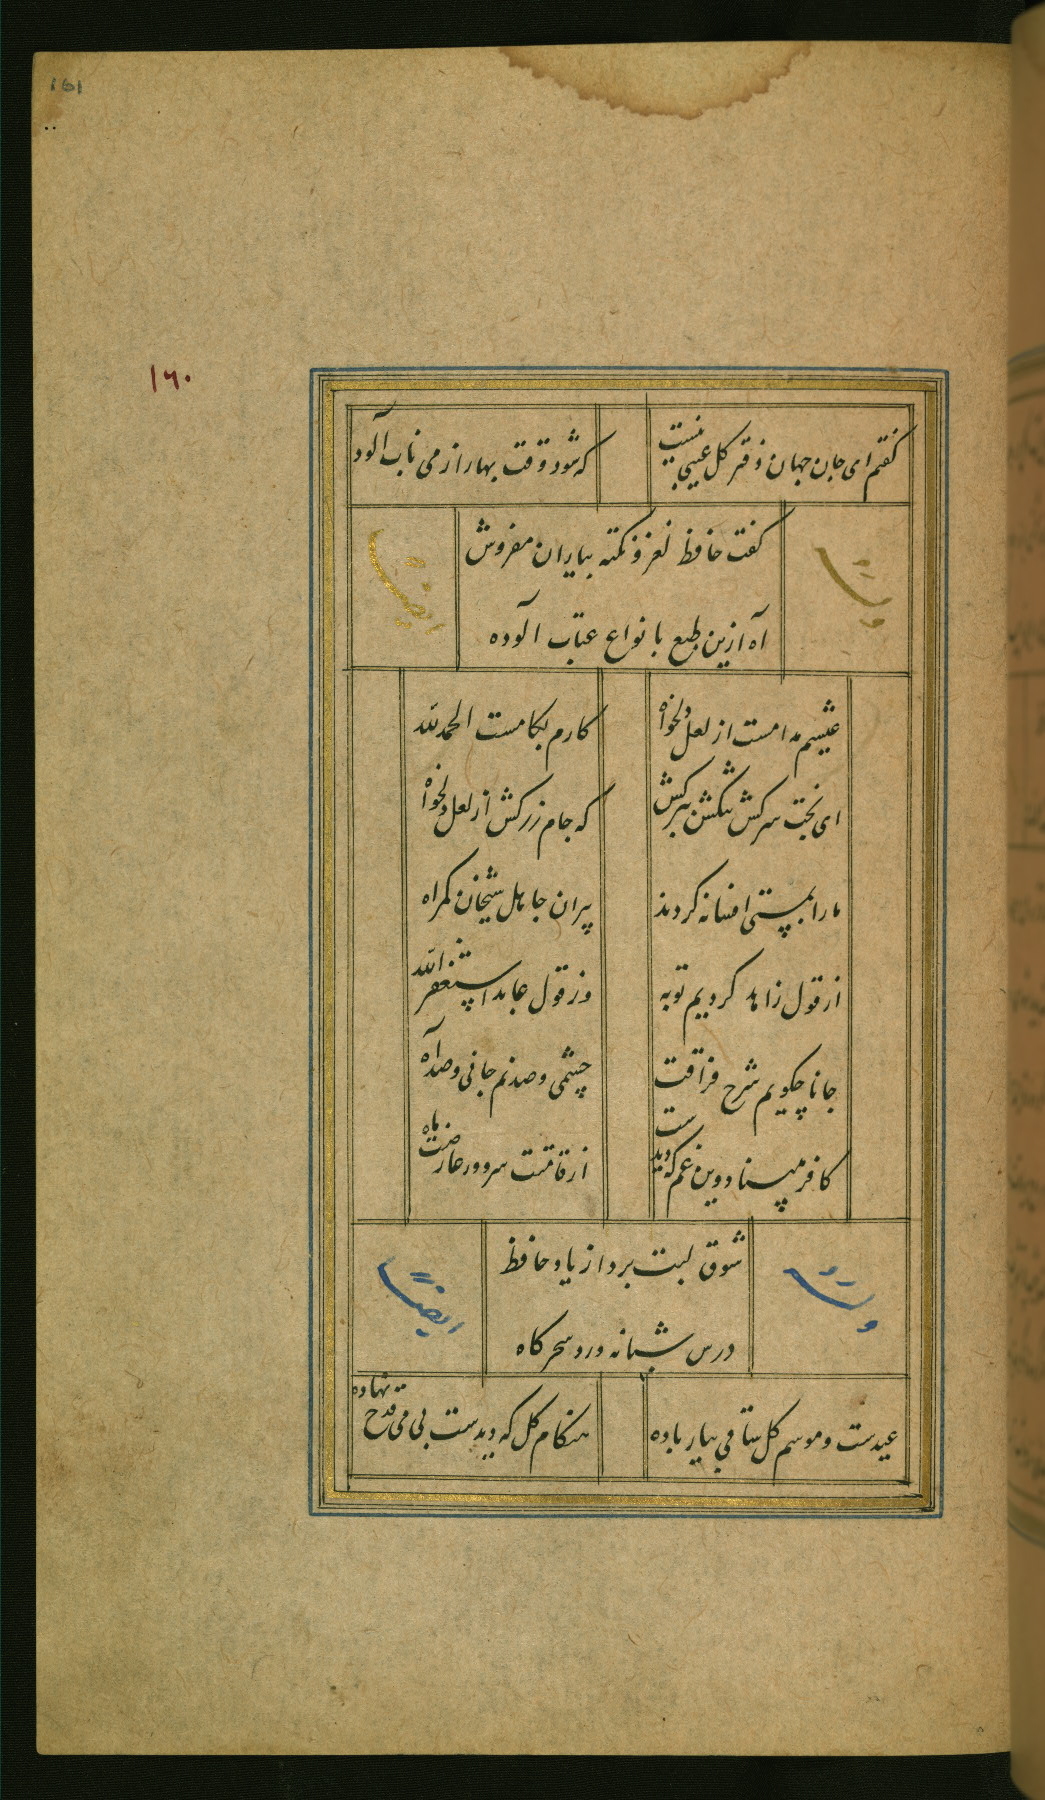 ۱۵۱
۱۶۰
کفتم ای جان جهان دفتر کل عیبی نیست
که شود وقت بهار از می ناب آلود
وله
کفت حافظ لغز و نکته بیاران مفروش
ایضا
آه ازین طبع با نواع عتاب آلوده
عیشم مدامست از لعل دلخواه
کارم بکامست الحمدلله
ای بخت سرکش تنکش ببر کش
که جام زرکش از لعل دلخواه
مارا بمستی افسانه کردند
پیران جاهل شیخان کمراه
از قول زاهد کردیم توبه
وز قول عابد استغفر الله
جانا چکویم شرح فراقت
چشمی و صد نم جانی و صد آه
کافر مبینا د وین غم که دیدست
از قامتت سرو ور عارضت ماه
وله
شوق لبت برد از یاد حافظ
ایضا
درس شبانه ورد سحر کاه
عیدست و موسم کل ساقی بیار باده
هنکام کل که دیدست بی می قدح نهاده